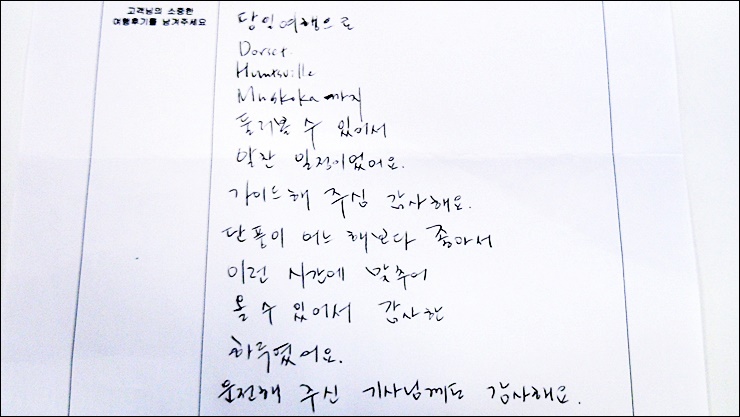 고객님의 소중한
여행후기를 남겨주세요
당일여행으로
Dorset.
Huntsville
Muskoka 까지
둘러볼 수 있어서
알찬 일정이었어요.
가이드해 주심 감사해요.
단풍이 어느 해보다 좋아서
이런 시간에 맞추어
올 수 있어서 감사한
하루였어요.
운전해 주신 기사님께도 감사해요.